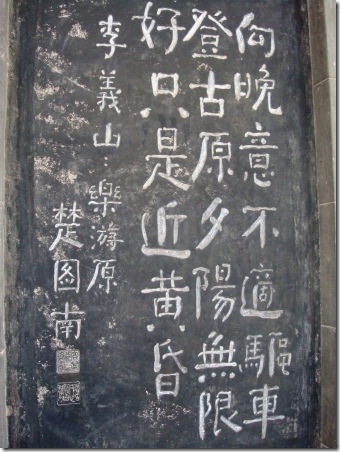 向晚意不適驅車
登古原夕陽無限
好只是近黃昏
李義山：樂游原
楚圖南